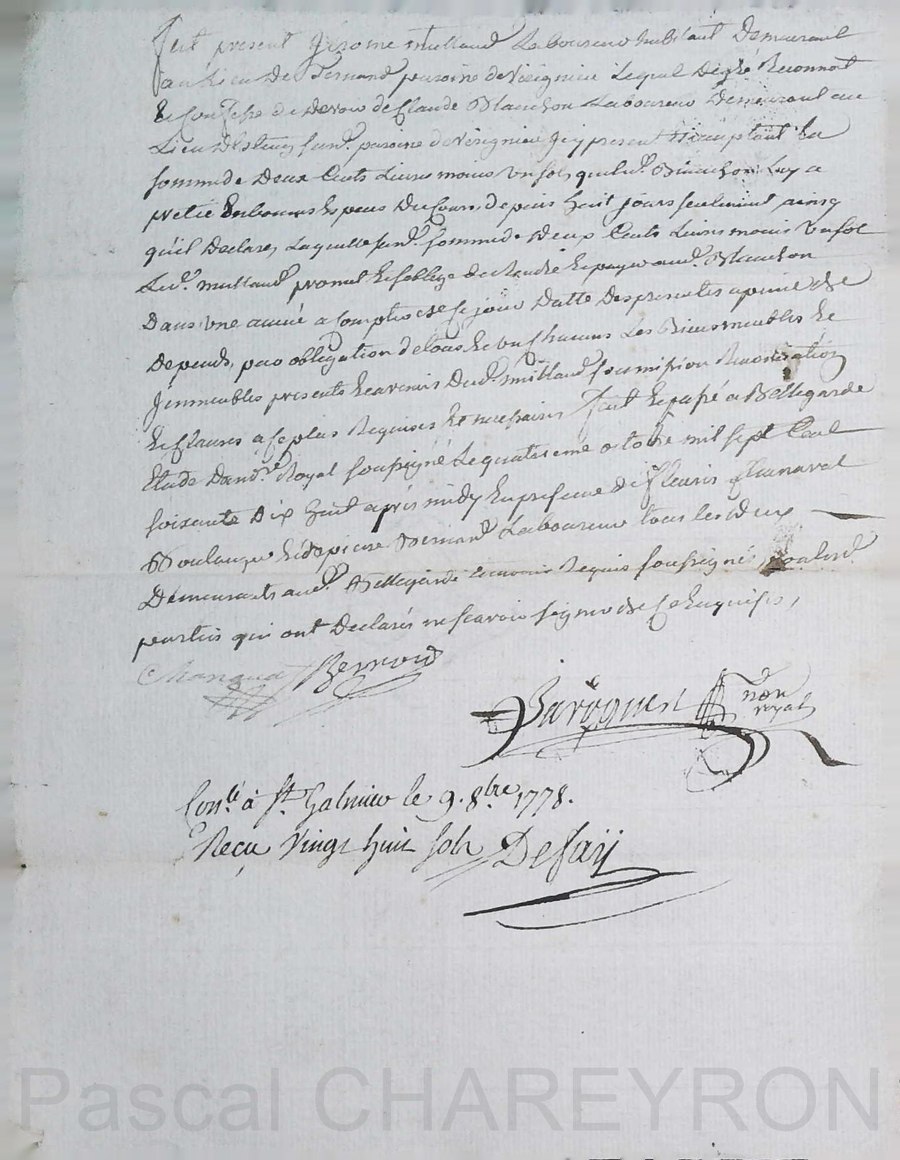 fut present Jerome Milland Laboureur habitant Demeurant
au Lieu De paroisse de Lequel De gré Reconnoit
et Confesse de Devoir de Claude Blanchon Laboureur Demeurant au
Lieu paroisse de present et acceptant La
somme de Deux Cents Livres moins un sol, que led.t Blanchon Luy a
preté En bonnes Especes Du Cours, depuis huit jours seulement ainsy
qu'il Declare, Laquelle sus.d. somme de Deux Cents Livres moins un sol
Led.t Milland promet Et s'oblige de Rendre Et payer aud.t Blanchon
Dans une année a Compter de Ce jour Datte Des presentes a peine de
Depends, par obligation de tous Et un Chacuns Les Biens meubles Et
Jmmeubles presents Et avenirs Dud.t Milland soumission Renonciation
Et Clauses a Ce plus Requises Et necessaires fait Et passé a Bellegarde
Etude Du no.re Royal soussigné Le quatrieme octobre mil sept Cent
soixante Dix huit après midy En presence de fleuris
Boulanger Et de pierre Bernard Laboureur tous Les Deux
Demeurants aud.t Bellegarde temoins Requis soussignés non Lesd.
parties qui ont Declarés ne scavoir signer de Ce Enquises,
Bernard
no.re
royal
Con.lé à S.t Galmier le 9. 8.bre 1778.
Reçu Vingt huit sols Defay
Pascal CHAREYRON